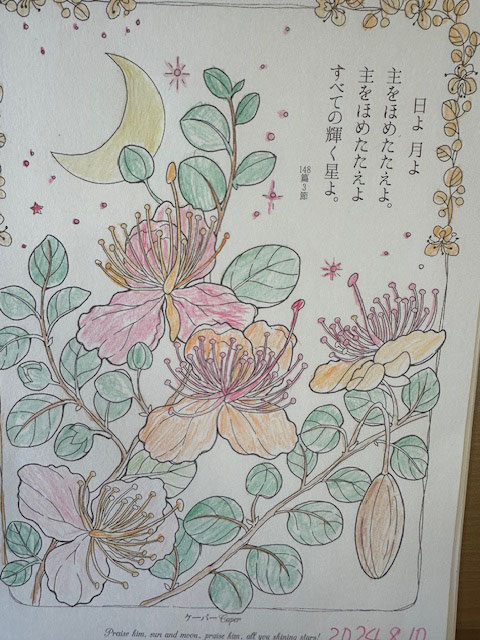 日よ 月よ
主をほめたたえよ。
主をほめたたえよ
すべての輝く星よ。
148
篇
3
節
ケーパー Caper
Praise him, sun and moon, praise him, all you shining stars!
2024.8.10